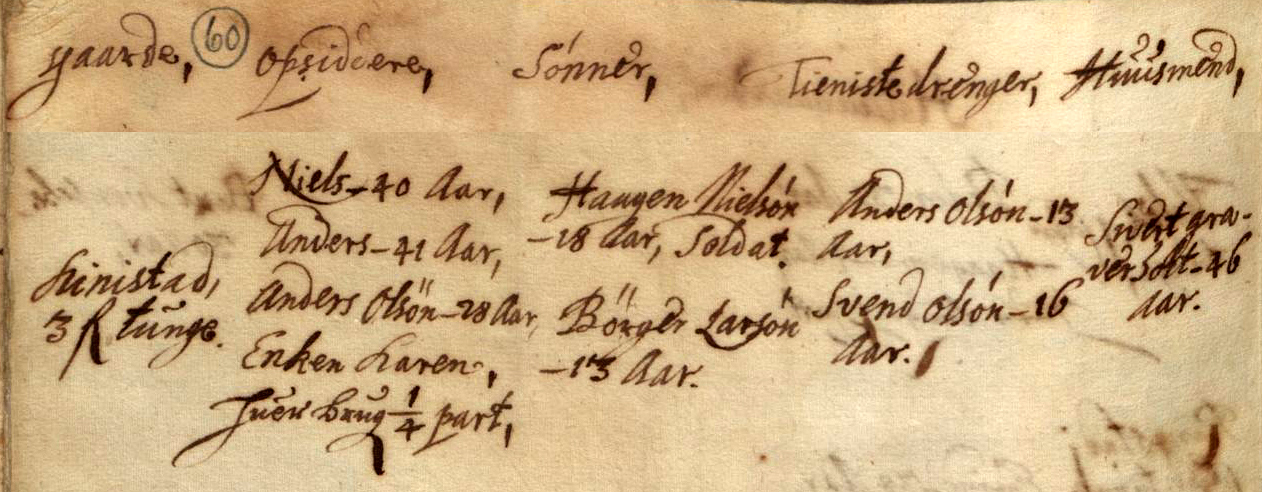 gaarde, 60 opsidere, Sønner, Tienistedrenger, Huusmend,
Kinistad,
3 tunge.
Niels - 40 Aar,
Anders - 41 Aar,
Anders Olsön - 28 Aar,
Enken Karen,
huer brug 1/4 part,
Haagen Nielsön
- 18 Aar, Soldat.
Börger Larsön
- 13 Aar.
Anders Olsön - 13
Aar,
Svend Olsön - 16
Aar.
Sivert gra-
verholt - 46
Aar.